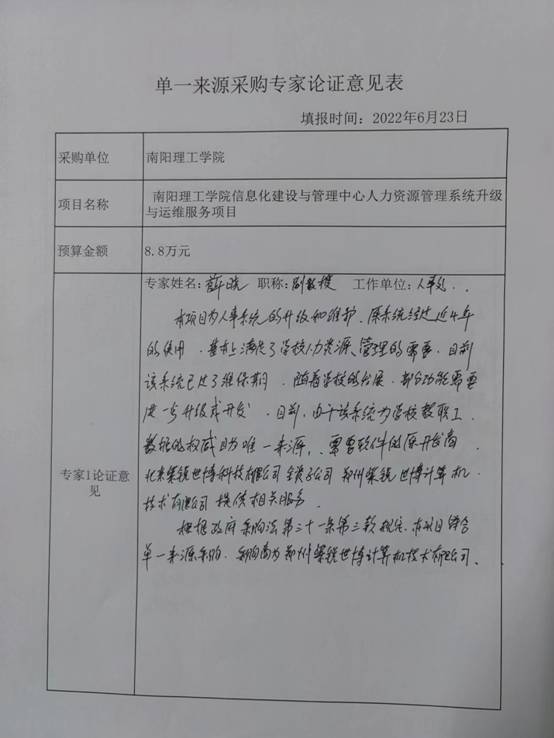 单一来源采购专家论证意见表
填报时间：2022年6月23日
采购单位 南阳理工学院
项目名称 南阳理工学院信息化建设与管理中心人力资源管理系统升级
与运维服务项目
预算金额 8.8万元
专家姓名：薛晓 职称：副教授 工作单位：人事处
本项目为人事系统的升级和维护、原系统经过近4年
的使用、基本上满足了学校人力资源管理的需要、目前
该系统已过了维保期、随着学校的发展、部分功能需要
进一步升级或开发、目前、由于该系统为学校教职工
数据的权威且唯一来源、需要软件的原开发商
专家1论证意
见
北京 世博科技有限公司全资子公司 郑州 世博计算机
技术有限公司提供相关服务。
根据政府采购法第三十一条第三款规定、本项目符合
单一来源采购、采购商为郑州 世博计算机技术有限公司。